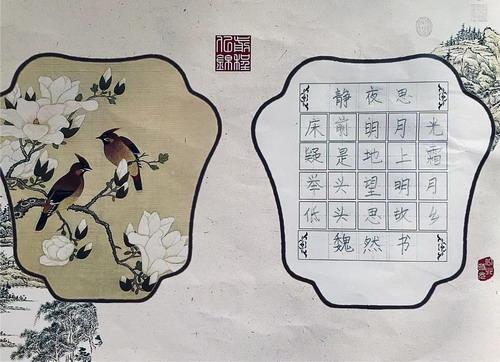 静夜思
床前明月光
疑是地上霜
举头望明月
低头思故乡
魏然书